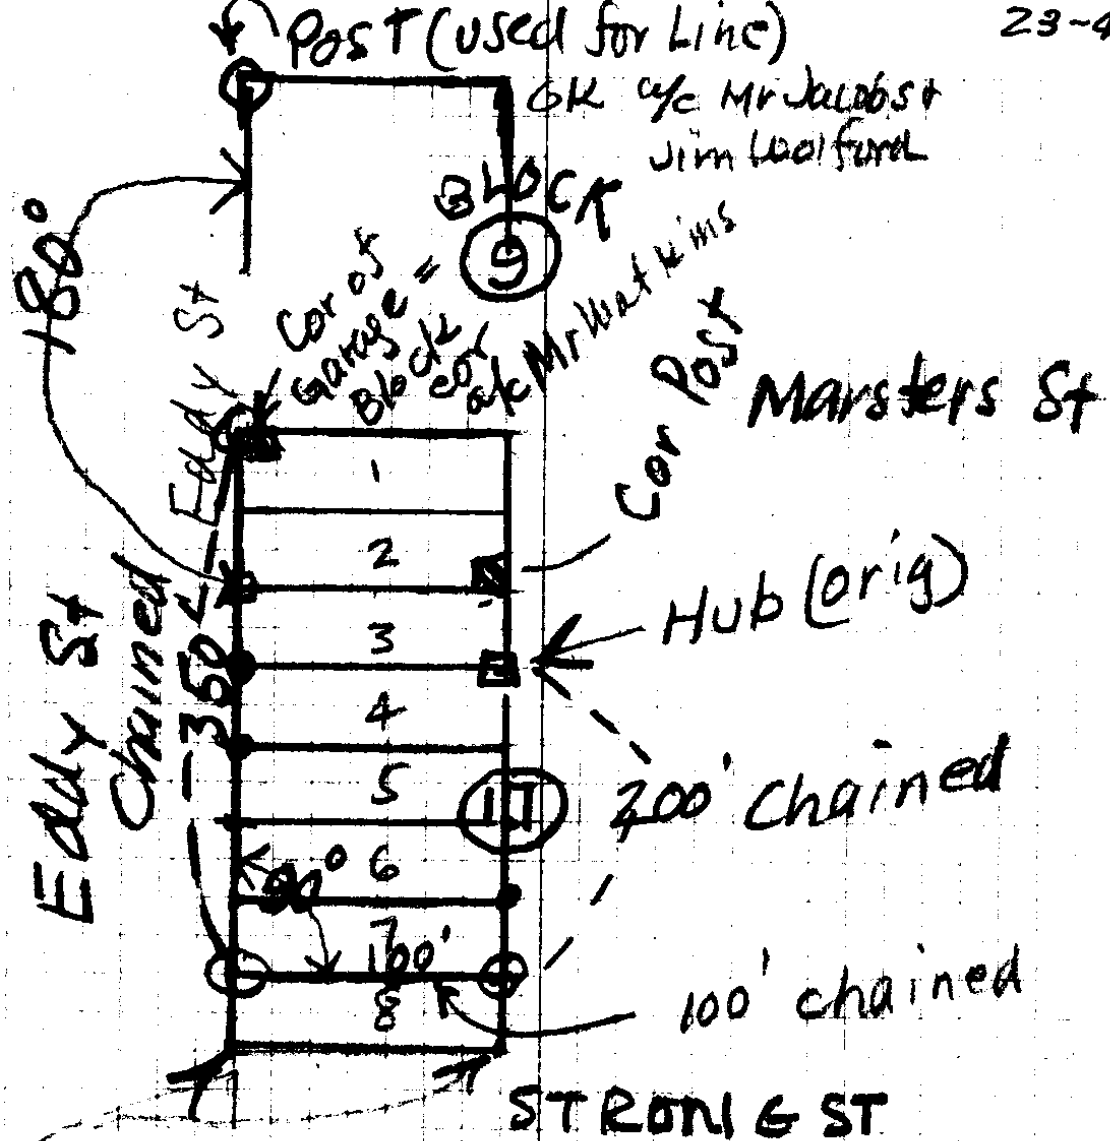 23-4
Post (used for Line)
OK a/c Mr Jacobs +
Jim Woolford
BLOCK
9
180°
Eddy St
Cor of
Garage =
Block
cor
a/c Mr Watkins
Cor Post
Marsters St
1
2
Hub (orig)
3
4
Eddy St
Chained
350
5
17
200' Chained
6
90°
7
100'
8
100' chained
STRONG ST